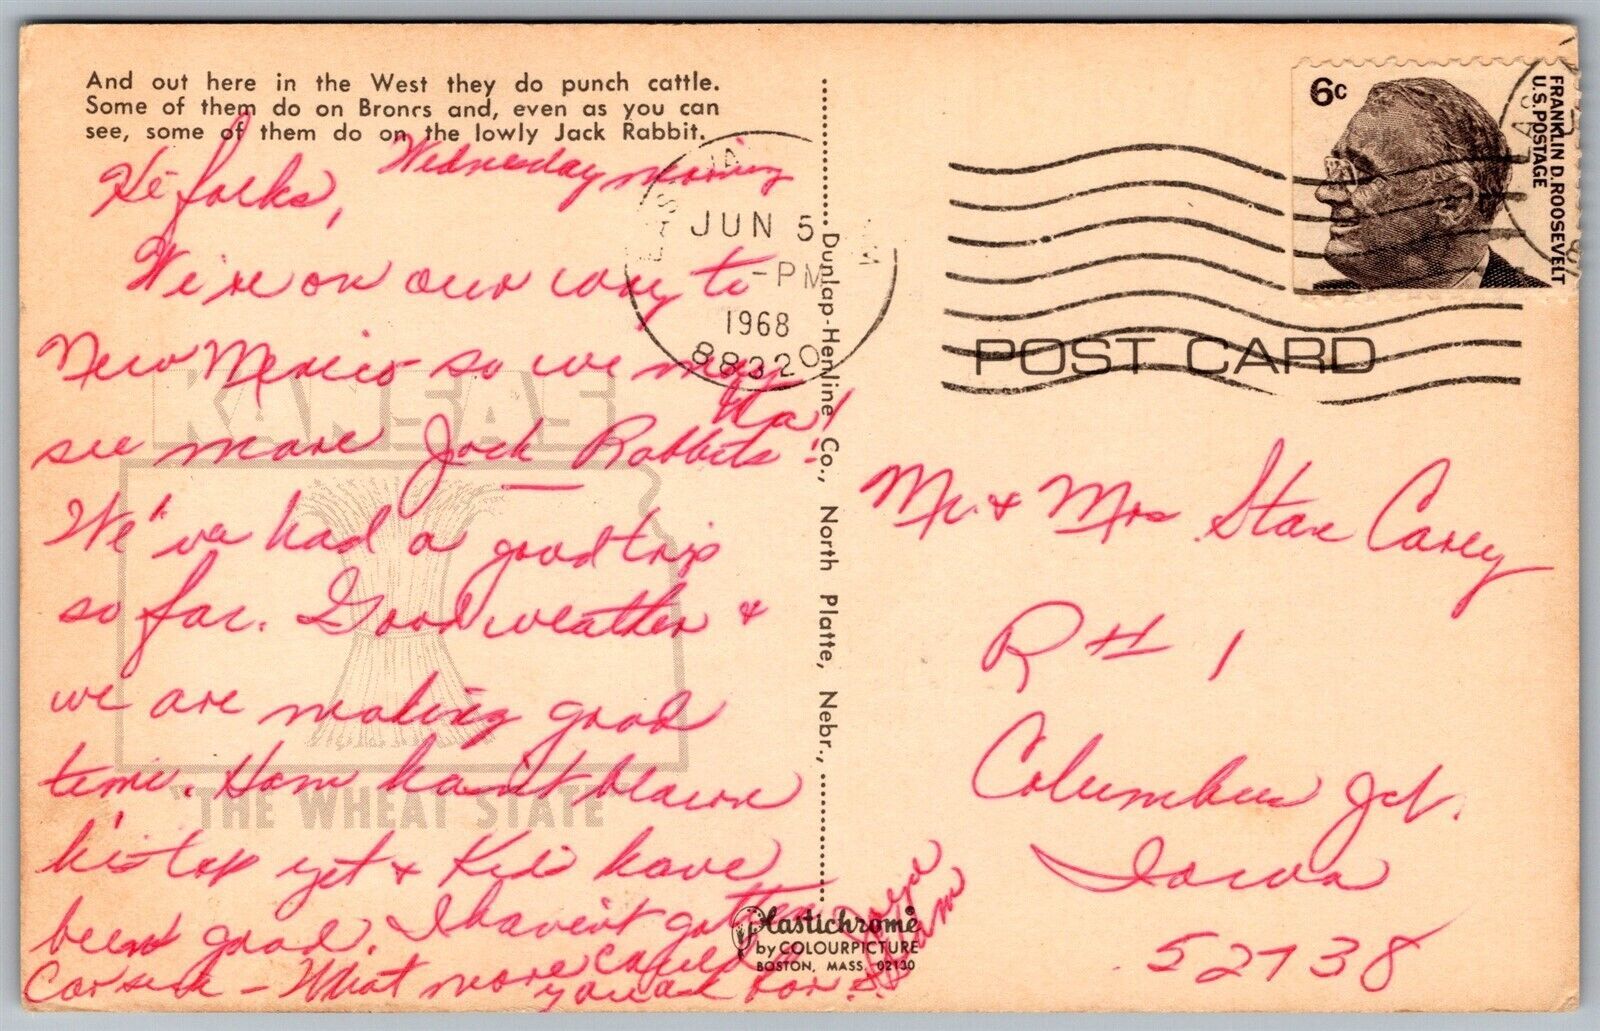 And out here in the West they do punch cattle.
Some of them do on Broncs and, even as you can
see, some of them do on the lowly Jack Rabbit.
Wednesday morning
Hi folks,
We're on our way to
New Mexico so we may
see more Jack Rabbits Ha!
We've had a good trip
so far. Good weather &
we are making good
time. Ham hasn't blown
his top yet & Kids have
been good. I haven't gotten
carsick - What more could
you ask for.
Ham
KANSAS
"THE WHEAT STATE"
Dunlap-Henline Co., North Platte, Nebr.,
Plastichrome
by COLOURPICTURE
BOSTON, MASS. 02130
JUN 5
-PM
1968
88320
6c
FRANKLIN D. ROOSEVELT
U.S. POSTAGE
POST CARD
Mr. & Mrs Stan Carey
R # 1
Columbus Jct.
Iowa
52738